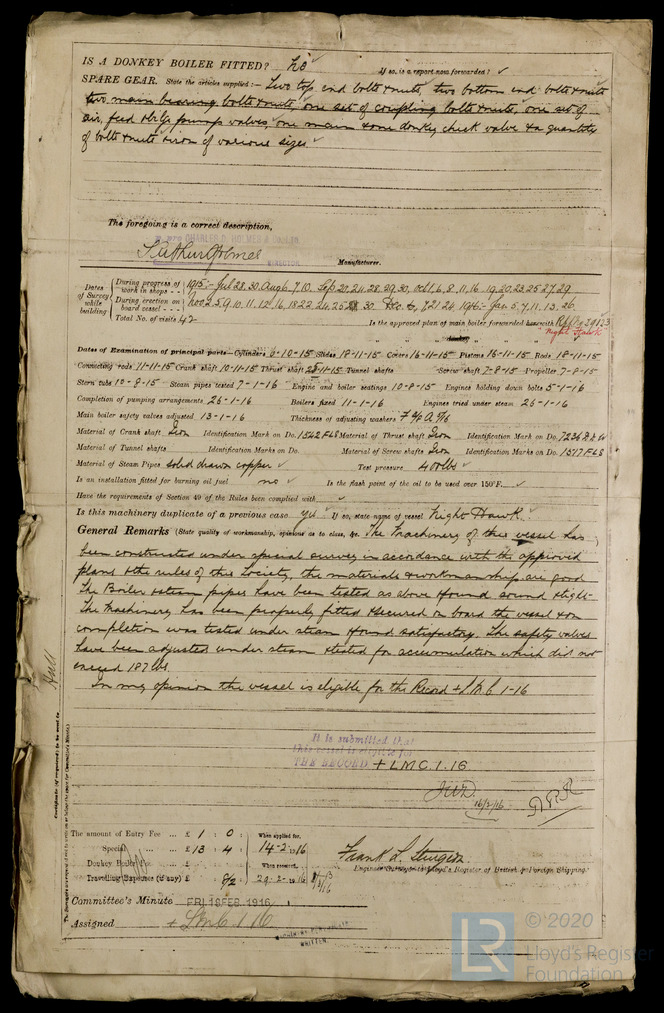 IS A DONKEY BOILER FITTED? No If so, is a report now forwarded? ✓
SPARE GEAR. State the articles supplied:— Two top end bolts & nuts, two bottom end bolts & nuts
two main bearing bolts & nuts, one set of coupling bolts & nuts, one set of
air, feed & bilge pump valves, one main & one donkey check valve & a quantity
of bolts & nuts & iron of various sizes ✓
The foregoing is a correct description,
DIRECTOR Manufacturer.
Dates of Survey while building
During progress of work in shops - - 1915:- Jul 28. 30. Aug 6. 7. 10. Sep 20. 24. 28. 29. 30. Oct 1. 6. 8. 11. 16. 19. 20. 23. 25. 27. 29
During erection on board vessel - - - Nov 2. 5. 9. 10. 11. 12. 16. 18. 22. 24. 25. 30. Dec 6. 7. 21. 24. 1916:- Jan 5. 7. 11. 13. 26.
Total No. of visits 42
Is the approved plan of main boiler forwarded herewith
"Night Hawk"
Dates of Examination of principal parts—Cylinders 6-10-15 Slides 18-11-15 Covers 16-11-15 Pistons 16-11-15 Rods 18-11-15
Connecting rods 11-11-15 Crank shaft 10-11-15 Thrust shaft 25-11-15 Tunnel shafts Screw shaft 7-8-15 Propeller 7-8-15
Stern tube 10-8-15 Steam pipes tested 7-1-16 Engine and boiler seatings 10-8-15 Engines holding down bolts 5-1-16
Completion of pumping arrangements 26-1-16 Boilers fixed 11-1-16 Engines tried under steam 26-1-16
Main boiler safety valves adjusted 13-1-16 Thickness of adjusting washers
Material of Crank shaft Iron Identification Mark on Do. 1542 FLS Material of Thrust shaft Iron Identification Mark on Do. 7236
Material of Tunnel shafts Identification Marks on Do. Material of Screw shafts Iron Identification Marks on Do. 1517 FLS
Material of Steam Pipes solid drawn copper ✓ Test pressure 400 lbs ✓
Is an installation fitted for burning oil fuel no ✓ Is the flash point of the oil to be used over 150°F. ✓
Have the requirements of Section 49 of the Rules been complied with ✓
Is this machinery duplicate of a previous case yes ✓ If so, state name of vessel Night Hawk. ✓
General Remarks (State quality of workmanship, opinions as to class, &c. The Machinery of this vessel has
been constructed under special survey in accordance with the approved
plans & the rules of this Society, the materials & workmanship are good
The Boiler & steam pipes have been tested as above & found sound & tight.
The Machinery has been properly fitted & secured on board the vessel & on
completion was tested under steam & found satisfactory. The safety valves
have been adjusted under steam & tested for accumulation which did not
exceed 187 lbs.
In my opinion the vessel is eligible for the Record + LMC 1-16
Hull
It is submitted that
this vessel is eligible for
THE RECORD + LMC. 1. 16
16/2/16
The amount of Entry Fee ... £ 1 : 0 When applied for,
Special ... £ 13 : 4 14-2-1916
Donkey Boiler Fee ... £ When received,
Travelling Expenses (if any) £ 8/2 29-2-1916
Frank L. Sturgeon
Engineer Surveyor to Lloyd's Register of British & Foreign Shipping.
Committee's Minute FRI. 18 FEB. 1916
Assigned + LMC 1. 16
WRITTEN.
LR © 2020
Lloyd's Register
Foundation